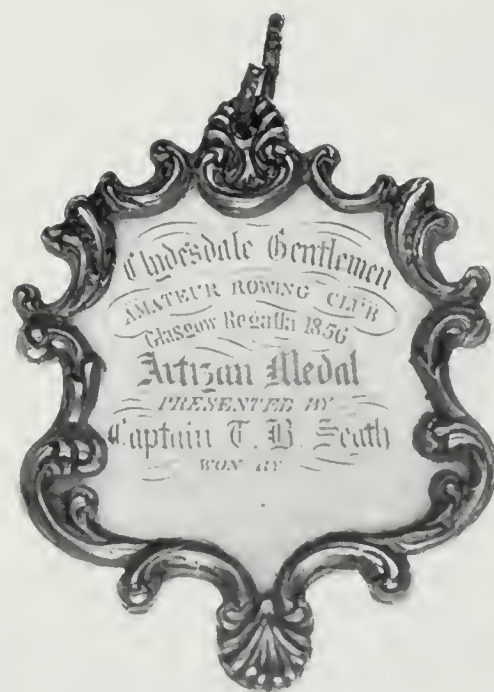 Clydesdale Gentlemen
AMATEUR ROWING CLUB
Glasgow Regatta 1856
Artizan Medal
PRESENTED BY
Captain T. B. Seath
WON BY